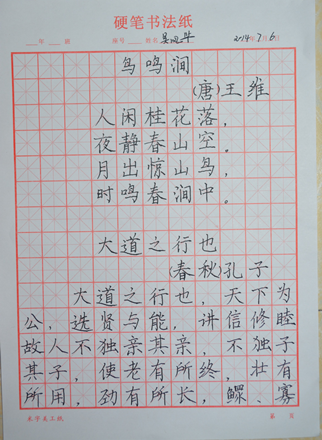 硬笔书法纸
年 班 编号 姓名 2014年7月6日
鸟鸣涧
(唐)王维
人闲桂花落，
夜静春山空。
月出惊山鸟，
时鸣春涧中。
大道之行也
(春秋)孔子
大道之行也，天下为
公，选贤与能，讲信修睦
故人不独亲其亲，不独子
其子，使老有所终，壮有
所用，幼有所长，鳏、寡
米字美工纸 第 页